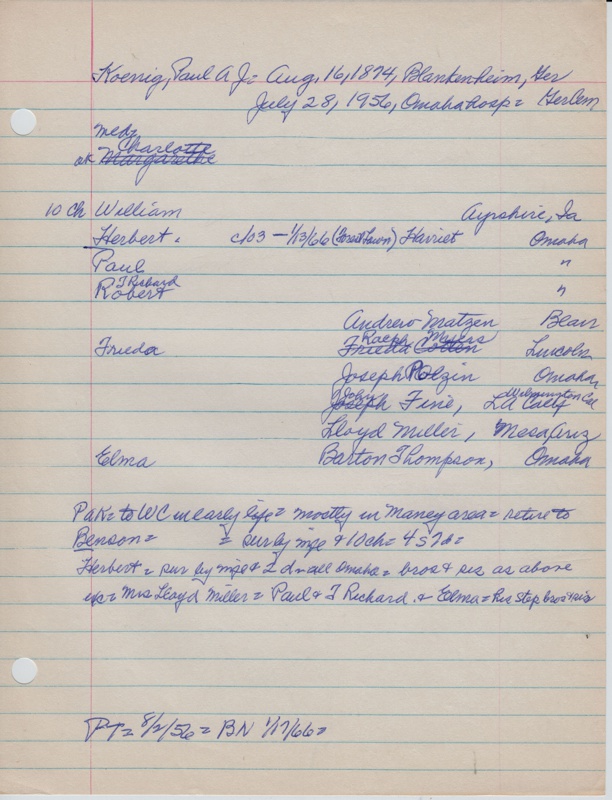 Koenig, Paul A J = Aug, 16, 1874, Blankenheim, Ger
July 28, 1956, Omaha hosp = Herlem
med,
Charlotte
ok Margarethe
10 Ch William Ayrshire, Ia
Herbert, c/03 - 1/13/66 (Forest Lawn) Harriet Omaha
Paul "
T Richard
Robert "
Andrew Matzen Blair
Ralph Meyers
Frieda Frieda Cotten Lincoln
Joseph Polzin Omaha
John Wilmington Cal
Joseph Fine, LA Calif
Lloyd Miller, Mesa Ariz
Elma Barton Thompson, Omaha
PaK = to WC in early life = mostly in Maney area = retire to
Benson = = sur by mge & 10 ch = 4 s 7 d =
Herbert = sur by mge & 2 d = all Omaha = bros & sis as above
ex = Mrs Lloyd Miller = Paul & T Richard & Elma = his step bro & sis
PT = 8/2/56 = BN 1/17/66 =